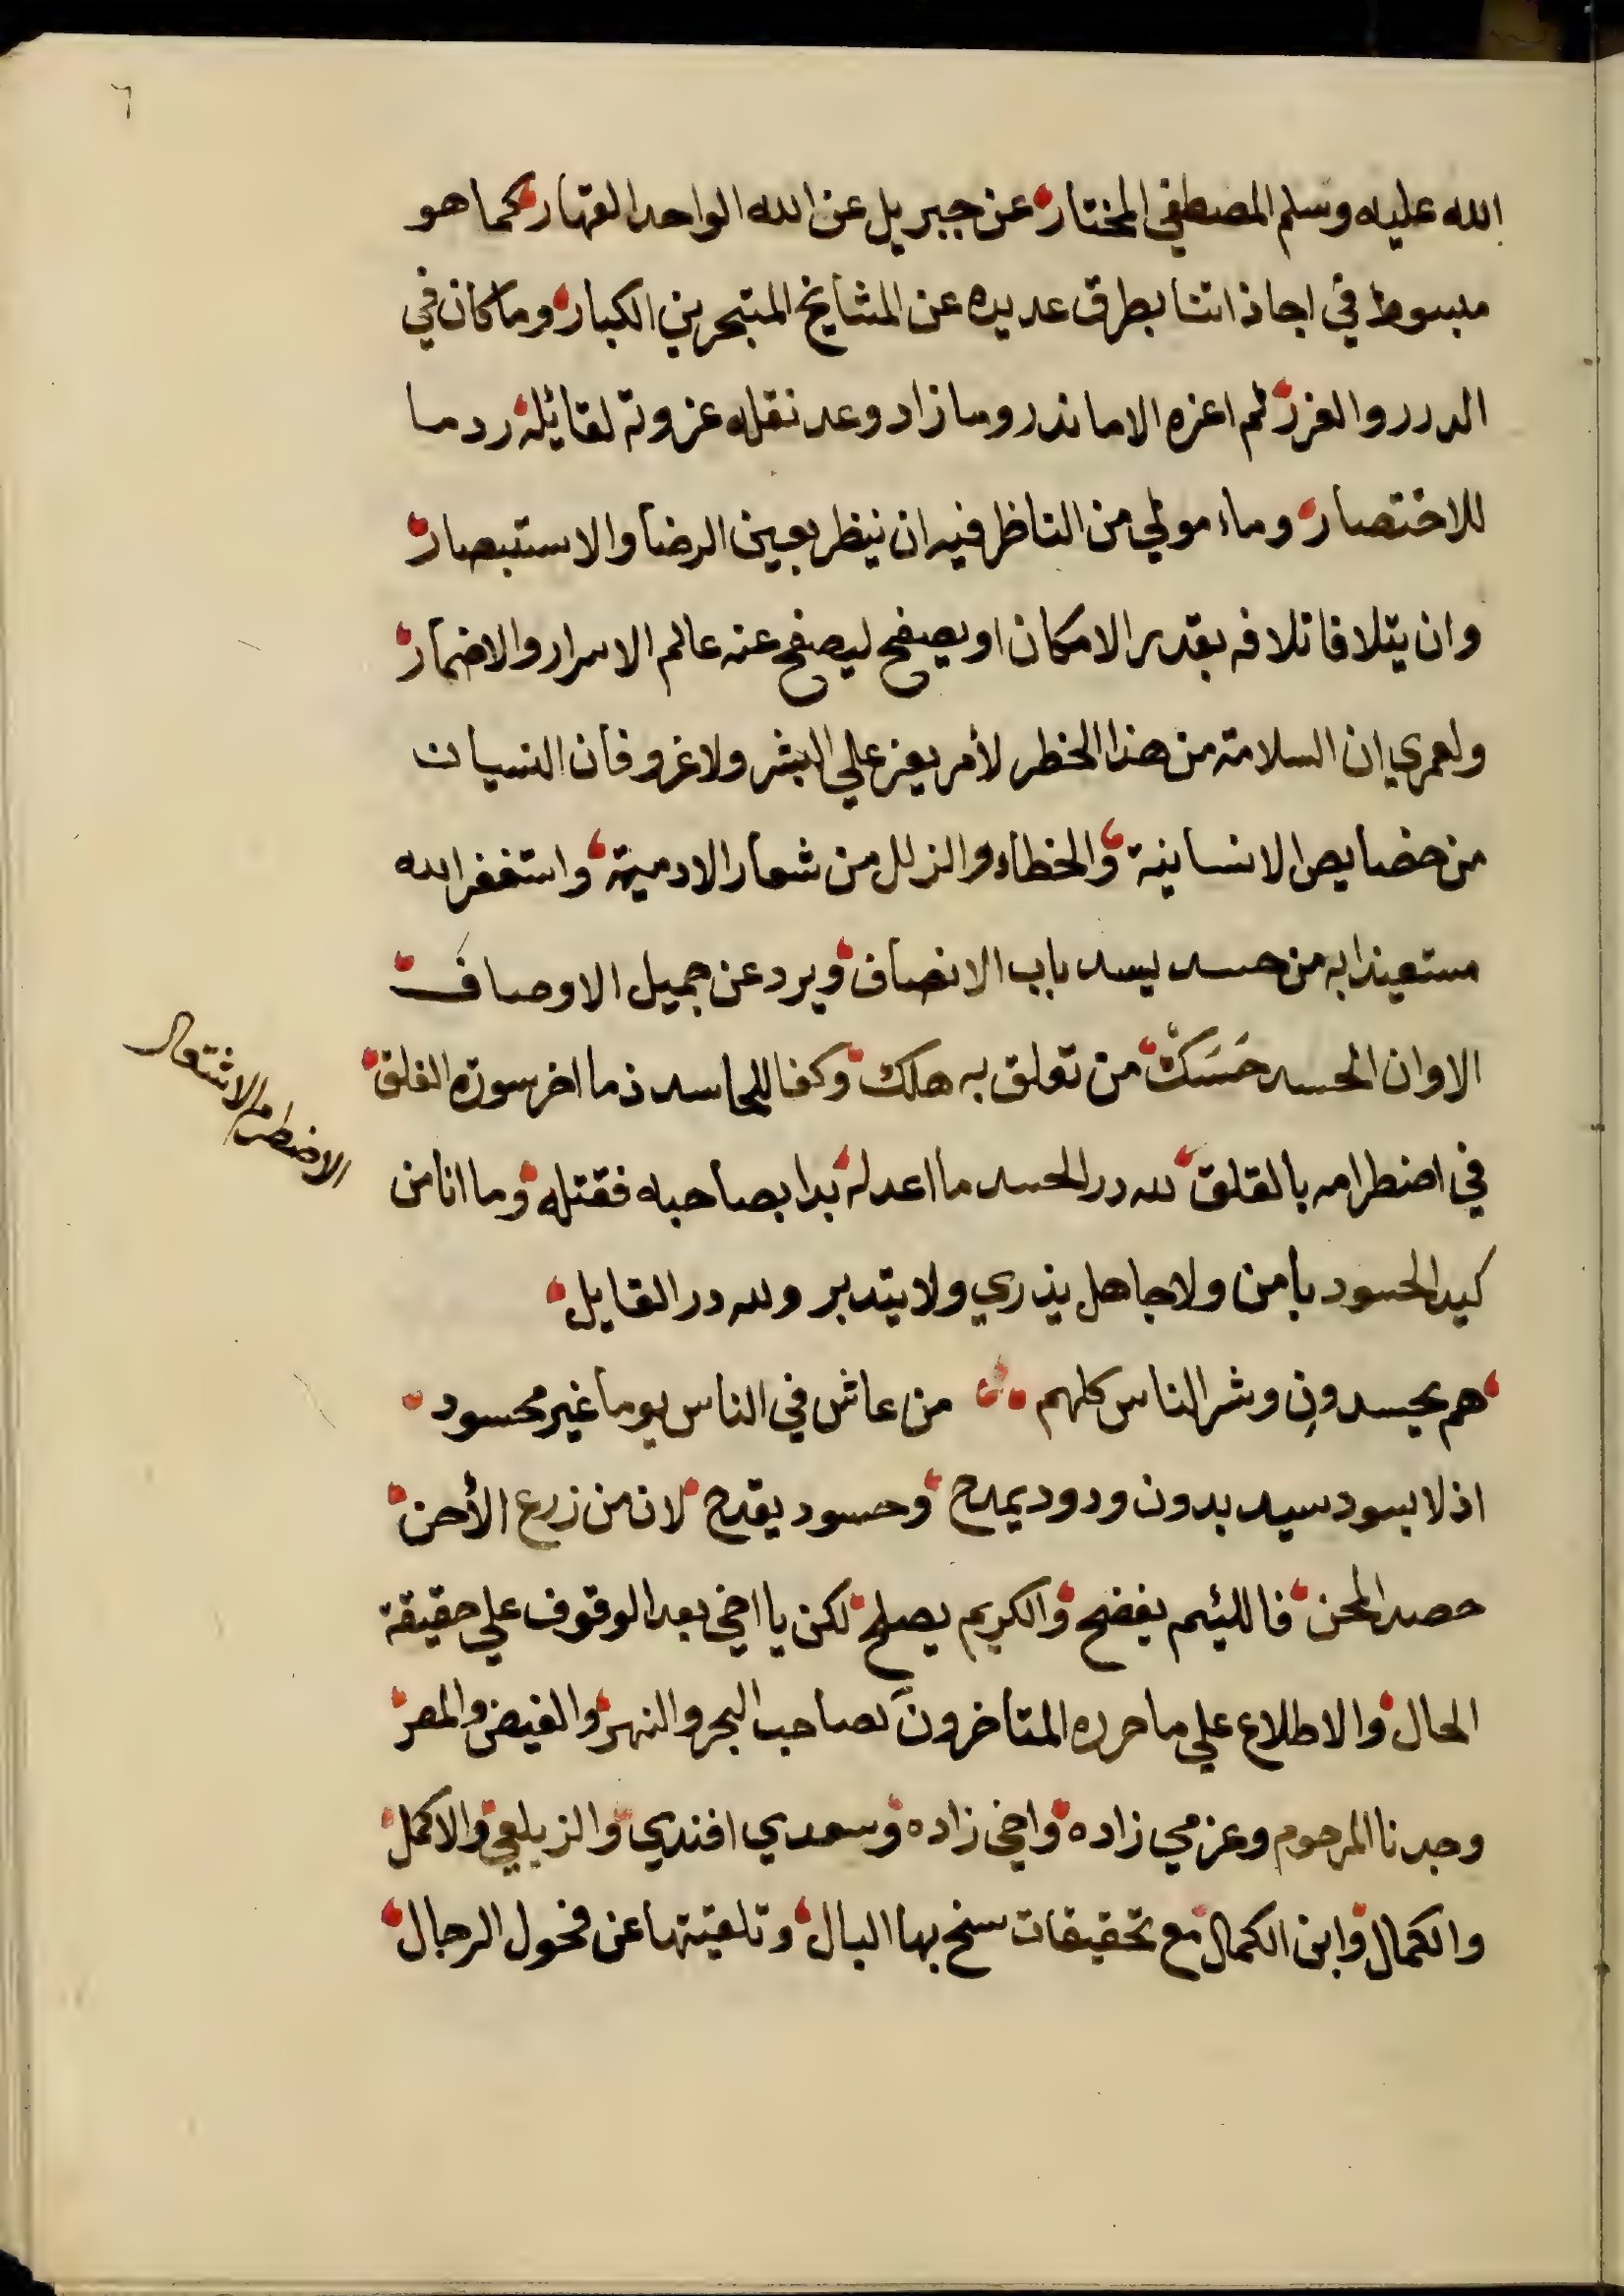 ٦
الله عليه وسلم المصطفي المختار عن جبريل عن الله الواحد القهار كما هو
مبسوط في اجازاتنا بطرق عديده عن المشايخ المتبحرين الكبار وما كان في
الدرر والغرر لم اعزه الا ما ندر وما زاد وعد نقله عزوته لقائله ردما
للاختصار وماء مولي من الناظر فيه ان ينظر بعين الرضا والاستبصار
وان يتلافا تلافه بقدر الامكان او يصفح ليصفح عنه عالم الاسرار والاضمار
ولعمري ان السلامة من هذا الخطر لأمر يعز علي البشر ولا غرو فان النسيان
من خصايص الانسانية والخطاء والزلل من شعار الادمية واستغفر الله
مستعيذا به من حسد يسد باب الانصاف ويرد عن جميل الاوصاف
الا وان الحسد حَسَكٌ من تعلق به هلك وكفا للحاسد ذما اخر سورة الفلق
في اضطرامه بالقلق لله در الحسد ما اعدله بدا بصاحبه فقتله وما انا من
كيد الحسود بأمن ولا جاهل يزري ولا يتدبر ولله در القايل
هم يحسدون وشر الناس كلهم من عاش في الناس يوما غير محسود
اذ لا يسود سيد بدون ودود يمدح وحسود يقدح لان من زرع الأحن
حصد المحن فاللئيم يفضح والكريم يصلح لكن يا اخي بعد الوقوف علي حقيقة
الحال والاطلاع علي ما حرره المتاخرون كصاحب البحر والنهر والفيض والمعر
وجدنا المرحوم وعزمي زاده واخي زاده وسعدي افندي والزيلعي والاكمل
والكمال وابن الكمال مع تحقيقات سنح بها البال وتلقيتها عن فحول الرجال
الاضطرام الاشتعال